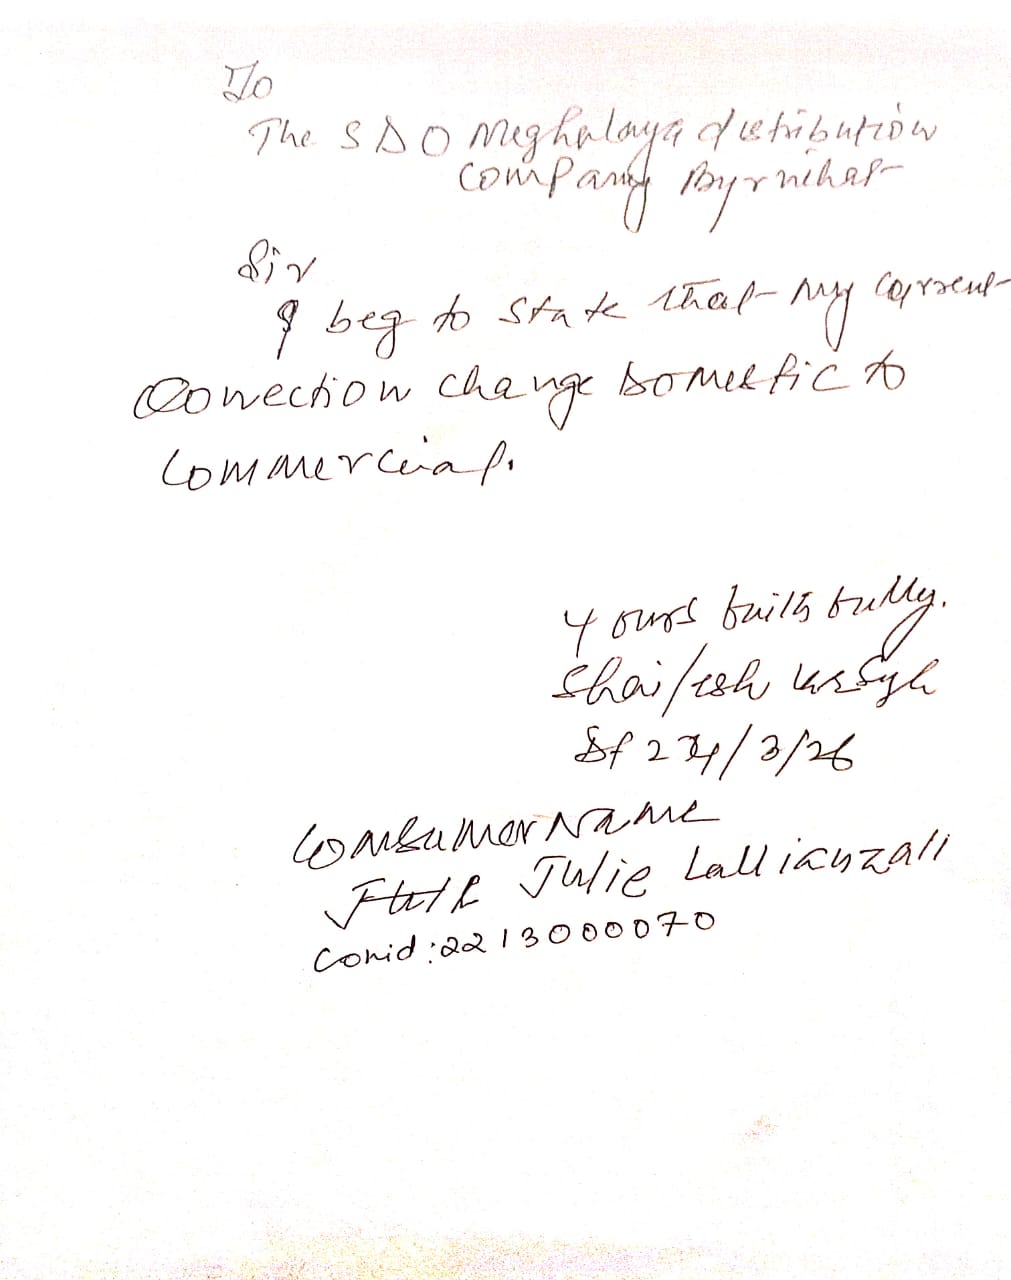 To
The SDO Meghalaya distribution
company Byrnihat
Sir
I beg to state that my current
Connection change Domestic to
Commercial.
Yours faithfully.
Shailesh Kr Sgh
Dt 24/3/26
Consumer Name
Julie Lallianzali
Conid:2213000070